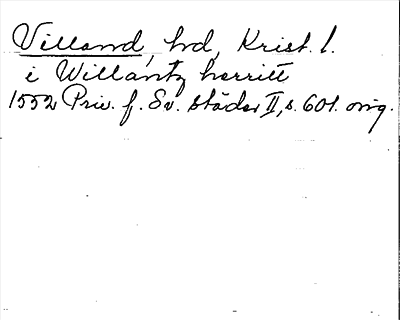 Villand, hd, Krist. l.
i Willantz herritt
1552 Priv. f. Sv. städer II, s. 601. orig.